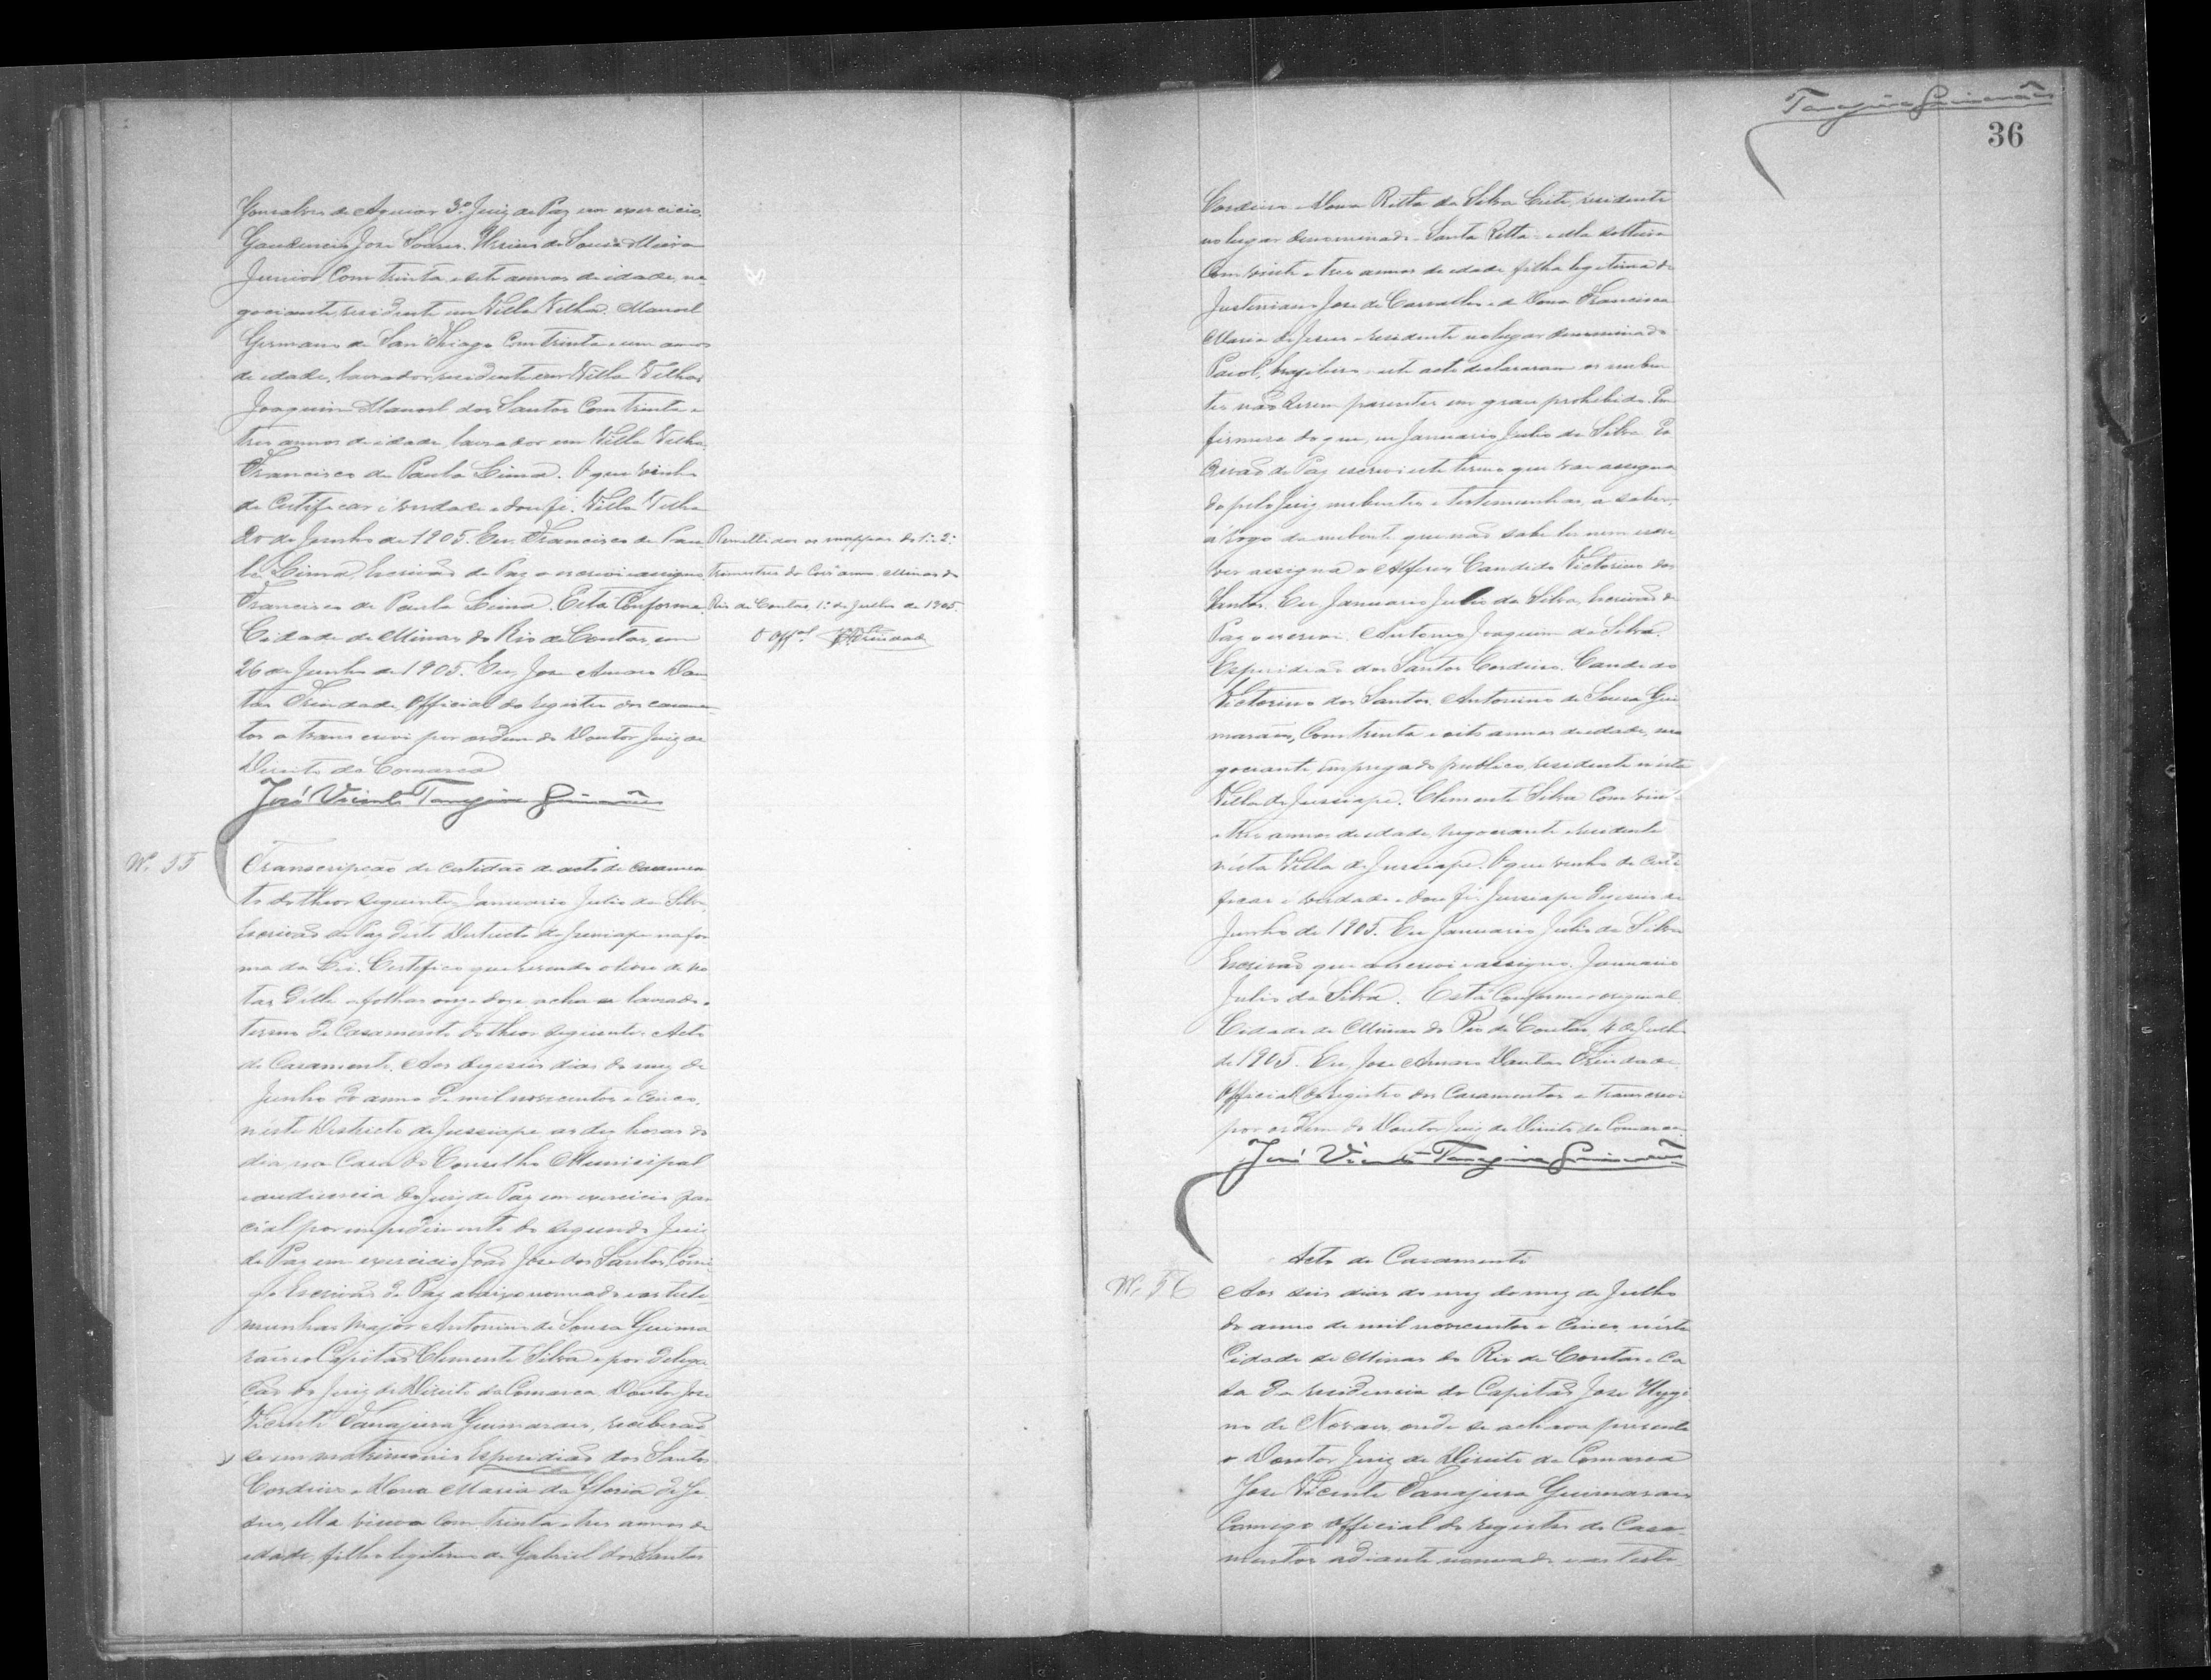 Gonsalves de Aguiar 3º Juiz de Paz em exercicio.
Gaudencio José Soares. Ursino de Sousa Meira
Junior Com trinta e sete annos de idade, ne
gociante, residente em Villa Velha. Manoel
Germano de San Thiago Com trinta e um annos
de idade, lavrador, residente em Villa Velha
Joaquim Manoel dos Santos Com trinta e
tres annos de idade, lavrador em Villa Velha.
Francisco de Paula Lima. O que venho
de Certificar é verdade e dou fé. Villa Velha
20 de Junho de 1905. Eu, Francisco de Pau
la Lima, Escrivão de Paz o escrevi e assigno
Francisco de Paula Lima. Está Conforme.
Cidade de Minas do Rio de Contas, em
26 de Junho de 1905. Eu, Jose Amaro Dan
tas Trindade Official do registro dos casamen
tos a transcrevi por ordem do Doutor Juiz de
Direito da Comarca
José Vicente Tanajura Guimarães
Remettidos os mappas do 1º e 2º
trimestres do Corre anno. Minas do
Rio de Contas, 1º de Julho de 1905.
O Offal. Trindade
Nº 55
Transcripção de certidão de acto de casamen
to do theor seguinte: Januario Julio da Silva,
Escrivão de Paz d'este Districto de Jussiape na for
ma da Lei. Certifico que revendo o livro de no
tas d'elle a folhas onze e doze acha se lavrado o
termo de Casamento do theor seguinte: Acto
de Casamento. Aos dezeseis dias do mez de
Junho do anno de mil novecentos e cinco,
n'este Districto de Jussiape, as dez horas do
dia, na Casa do Conselho Municipal
e audiencia do Juiz de Paz em exercicio par
cial por impedimento do segundo Juiz
de Paz em exercicio João José dos Santos, Comi
go Escrivão de Paz abaixo nomeado e as teste
munhas Major Antonino de Sousa Guima
rães e Capitão Clemente Silva e por delega
ção do Juiz de Direito da Comarca Doutor Jose
Vicente Tanajura Guimarães, receberão
se em matrimonio Esperidião dos Santos
Cordeiro e Dona Maria da Gloria de Je
sus, elle viuvo Com trinta e tres annos de
idade, filho legitimo de Gabriel dos Santos
Tanajura Guimarães
36
Cordeiro e Dona Ritta da Silva Leite, residente
no lugar denominado Santa Ritta e ella solteira
Com vinte e tres annos de idade filha legitima de
Justiniano Jose de Carvalho e de Dona Francisca
Maria de Jesus e residente no lugar denominado
Paiol, brazileiros n'este acto declararam os nuben
tes não serem parentes em grau prohebido. Em
firmesa do que, eu Januario Julio da Silva Es
crivão de Paz escrevi este termo que vae assigna
do pelo Juiz, nubentes e testemunhas, a saber,
á rogo da nubente que não sabe ler nem escre
ver assigna o Alferes Candido Victorino dos
Santos. Eu Januario Julio da Silva, Escrivão de
Paz o escrevi. Antonio Joaquim da Silva.
Esperidião dos Santos Cordeiro. Candido
Victorino dos Santos. Antonino de Sousa Gui
marães, Com trinta e oito annos de idade, ne
gociante, empregado publico, residente n'esta
Villa de Jussiape. Clemente Silva Com vinte
e tres annos de idade, negociante e residente
n'esta Villa de Jussiape. O que venho de certi
ficar é verdade e dou fé. Jussiape dezeseis de
Junho de 1905. Eu Januario Julio da Silva
Escrivão que o escrevi e assigno. Januario
Julio da Silva. Está Conforme o original.
Cidade de Minas do Rio de Contas, 4 de Julho
de 1905. Eu, Jose Amaro Dantas Trindade
Official do registro dos Casamentos a transcrevi
por ordem do Doutor Juiz de Direito da Comarca
José Vicente Tanajura Guimarães
Nº 56
Acto de Casamento
Aos seis dias do mez do mez de Julho
do anno de mil novecentos e cinco, n'esta
Cidade de Minas do Rio de Contas e Ca
sa de residencia do Capitão Jose Hygi
no de Novaes, onde se achava presente
o Doutor Juiz de Direito da Comarca
Jose Vicente Tanajura Guimarães
Comigo Official do registro de Casa
mentos adiante nomeado e as teste